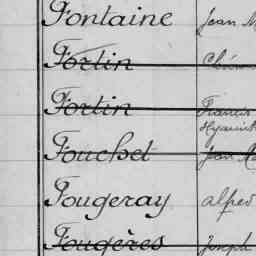 Fontaine Jean
Fortin
Fortin Francis
Hyacinth
Fouchet Jean
Fougeray alfred
Fougères Joseph